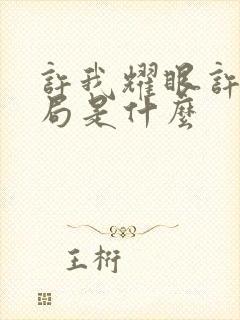 許我耀眼許
局是什麼
王桁